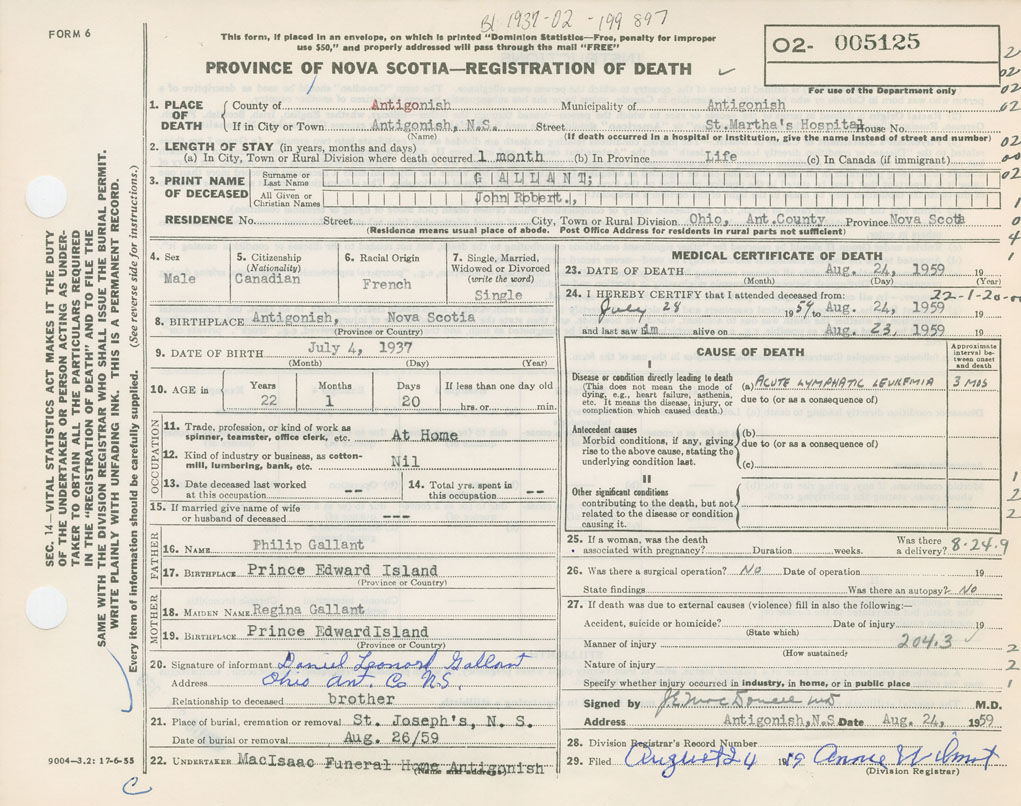 B1 1937-02-199897
FORM 6
This form, if placed in an envelope, on which is printed "Dominion Statistics—Free, penalty for improper
use $50," and properly addressed will pass through the mail "FREE"
PROVINCE OF NOVA SCOTIA—REGISTRATION OF DEATH
02- 005125
For use of the Department only
1. PLACE OF DEATH County of Antigonish Municipality of Antigonish
If in City or Town Antigonish, N.S. Street St.Martha's Hospital House No.
(Name) (If death occurred in a hospital or institution, give the name instead of street and number)
2. LENGTH OF STAY (in years, months and days)
(a) In City, Town or Rural Division where death occurred 1 month (b) In Province Life (c) In Canada (if immigrant)
3. PRINT NAME OF DECEASED Surname or Last Name GALLANT;
All Given or Christian Names John Robert.,
RESIDENCE No. Street City, Town or Rural Division Ohio, Ant.County Province Nova Scotia
(Residence means usual place of abode. Post Office Address for residents in rural parts not sufficient)
4. Sex Male
5. Citizenship (Nationality) Canadian
6. Racial Origin French
7. Single, Married, Widowed or Divorced (write the word) Single
8. BIRTHPLACE Antigonish, Nova Scotia
(Province or Country)
9. DATE OF BIRTH July 4, 1937
(Month) (Day) (Year)
10. AGE in Years 22 Months 1 Days 20 If less than one day old hrs. or min.
OCCUPATION
11. Trade, profession, or kind of work as spinner, teamster, office clerk, etc. At Home
12. Kind of industry or business, as cotton-mill, lumbering, bank, etc. Nil
13. Date deceased last worked at this occupation --
14. Total yrs. spent in this occupation --
15. If married give name of wife or husband of deceased ---
FATHER
16. NAME Philip Gallant
17. BIRTHPLACE Prince Edward Island
(Province or Country)
MOTHER
18. MAIDEN NAME Regina Gallant
19. BIRTHPLACE Prince EdwardIsland
(Province or Country)
20. Signature of informant Daniel Leonard Gallant
Address Ohio Ant. Co N.S.
Relationship to deceased brother
21. Place of burial, cremation or removal St. Joseph's, N. S.
Date of burial or removal Aug. 26/59
22. UNDERTAKER MacIsaac Funeral Home Antigonish
(Name and address)
MEDICAL CERTIFICATE OF DEATH
23. DATE OF DEATH Aug. 24, 1959 19
(Month) (Day) (Year)
24. I HEREBY CERTIFY that I attended deceased from: 22-1-20-
July 28 1959 to Aug. 24, 1959
and last saw him alive on Aug. 23, 1959
CAUSE OF DEATH
Approximate interval between onset and death
I
Disease or condition directly leading to death (a) ACUTE LYMPHATIC LEUKEMIA 3 MOS
(This does not mean the mode of dying, e.g., heart failure, asthenia, etc. It means the disease, injury, or complication which caused death.)
due to (or as a consequence of)
Antecedent causes
Morbid conditions, if any, giving rise to the above cause, stating the underlying condition last.
(b)
due to (or as a consequence of)
(c)
II
Other significant conditions
contributing to the death, but not related to the disease or condition causing it.
25. If a woman, was the death associated with pregnancy? Duration weeks. Was there a delivery? 8-24.9
26. Was there a surgical operation? NO Date of operation 19
State findings Was there an autopsy? NO
27. If death was due to external causes (violence) fill in also the following:—
Accident, suicide or homicide? Date of injury 19
(State which)
Manner of injury 204.3
(How sustained)
Nature of injury
Specify whether injury occurred in industry, in home, or in public place
Signed by M.D.
Address Antigonish,N.S. Date Aug. 24, 1959
28. Division Registrar's Record Number
29. Filed August 24 1959 Annie Wilmot
(Division Registrar)
SEC. 14—VITAL STATISTICS ACT MAKES IT THE DUTY
OF THE UNDERTAKER OR PERSON ACTING AS UNDER-
TAKER TO OBTAIN ALL THE PARTICULARS REQUIRED
IN THE "REGISTRATION OF DEATH" AND TO FILE THE
SAME WITH THE DIVISION REGISTRAR WHO SHALL ISSUE THE BURIAL PERMIT.
WRITE PLAINLY WITH UNFADING INK. THIS IS A PERMANENT RECORD.
Every item of information should be carefully supplied. (See reverse side for instructions.)
9004—3.2: 17-6-55